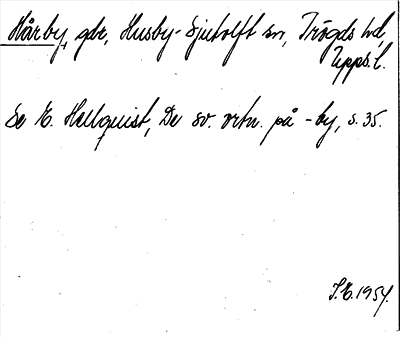 Hårby, gbr, Husby-Sjutolft sn, Trögds hd,
Upps. l.
Se E. Hellquist, De sv. ortn. på -by, s. 35.
I.E. 1954.